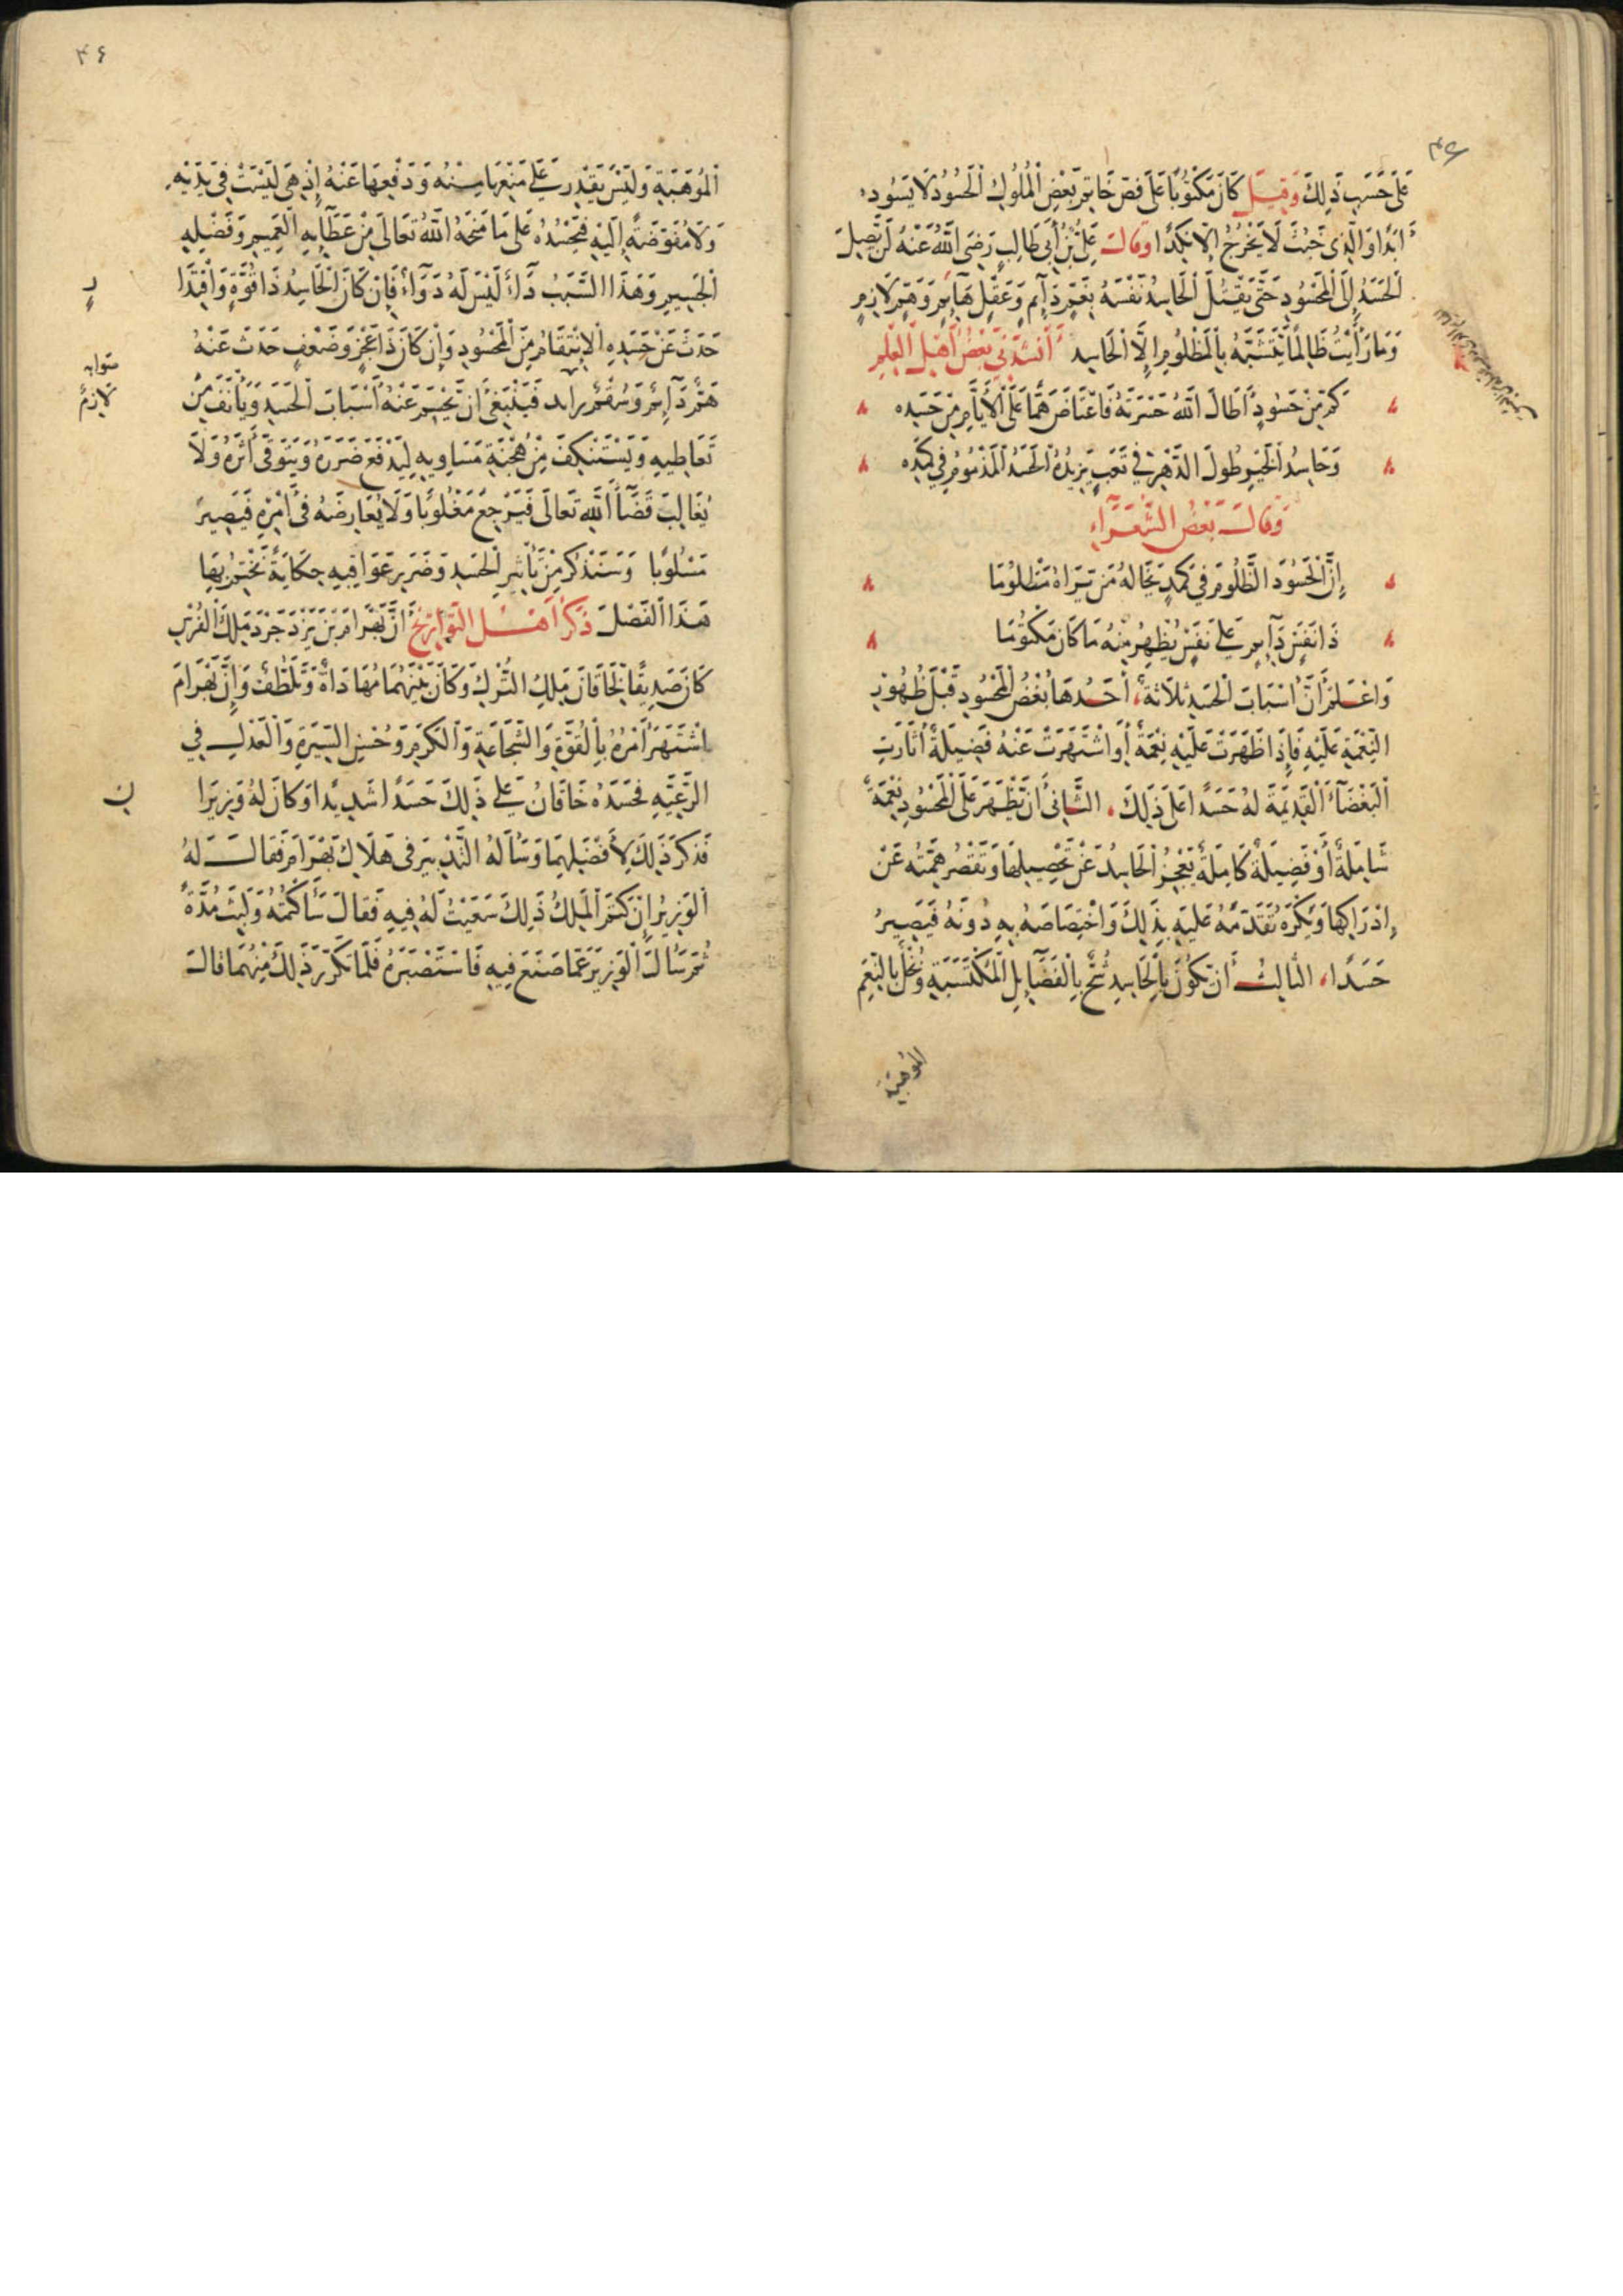 عَلَى حَسَبِ ذَلِكَ وَقِيلَ كَانَ مَكْتُوبًا عَلَى فَصِّ خَاتَمِ بَعْضِ الْمُلُوكِ الْحَسُودُ لَا يَسُودُ
أَبَدًا وَالَّذِي خَبُثَ لَا يَخْرُجُ إِلَّا نَكِدًا وَقَالَ عَلِيُّ بْنُ أَبِي طَالِبٍ رَضِيَ اللَّهُ عَنْهُ لَنْ يَصِلَ
الْحَسَدُ إِلَى الْمَحْسُودِ حَتَّى يَقْتُلَ الْحَاسِدُ نَفْسَهُ بِغَمٍّ دَائِمٍ وَعَقْلٍ هَائِمٍ وَهَمٍّ لَازِمٍ
وَمَا رَأَيْتُ ظَالِمًا يَتَشَبَّهُ بِالْمَظْلُومِ إِلَّا الْحَاسِدَ أَنْشَدَنِي بَعْضُ أَهْلِ الْعِلْمِ
كَمْ مِنْ حَسُودٍ أَطَالَ اللَّهُ حَسْرَتَهُ فَاعْتَاضَ هَمًّا عَلَى الْأَيَّامِ مِنْ حَسَدِهْ
وَحَاسِدُ الْخَيْرِ طُولَ الدَّهْرِ فِي تَعَبٍ يَزِيدُهُ الْحَسَدُ الْمَذْمُومُ فِي كَمَدِهْ
وَقَالَ بَعْضُ الشُّعَرَاءِ
إِنَّ الْحَسُودَ الظَّلُومَ فِي كَمَدٍ يَخَالُهُ مَنْ يَرَاهُ مَظْلُومَا
ذَا نَفَسٍ دَائِمٍ عَلَى نَفَسٍ يُظْهِرُ مِنْهُ مَا كَانَ مَكْتُومَا
وَاعْلَمْ أَنَّ أَسْبَابَ الْحَسَدِ ثَلَاثَةٌ أَحَدُهَا بُغْضُ الْمَحْسُودِ قَبْلَ ظُهُورِ
النِّعْمَةِ عَلَيْهِ فَإِذَا ظَهَرَتْ عَلَيْهِ نِعْمَةٌ أَوِ اشْتَهَرَتْ عَنْهُ فَضِيلَةٌ أَثَارَتِ
الْبَغْضَاءُ الْقَدِيمَةُ لَهُ حَسَدًا عَلَى ذَلِكَ الثَّانِي أَنْ تَظْهَرَ عَلَى الْمَحْسُودِ نِعْمَةٌ
شَامِلَةٌ أَوْ فَضِيلَةٌ كَامِلَةٌ يَعْجِزُ الْحَاسِدُ عَنْ تَحْصِيلِهَا وَتَقْصُرُ هِمَّتُهُ عَنْ
إِدْرَاكِهَا وَيَكْرَهُ تَقَدُّمَهُ عَلَيْهِ بِذَلِكَ وَاخْتِصَاصَهُ بِهِ دُونَهُ فَيَصِيرُ
حَسَدًا الثَّالِثُ أَنْ يَكُونَ بِالْحَاسِدِ شُحٌّ بِالْفَضَائِلِ الْمُكْتَسَبَةِ وَبُخْلٌ بِالنِّعَمِ
الموهبية
٤٦
الْمُوَهَبَةِ وَلَيْسَ يَقْدِرُ عَلَى مَنْعِهَا مِنْهُ وَدَفْعِهَا عَنْهُ إِذْ هِيَ لَيْسَتْ فِي يَدَيْهِ
وَلَا مُفَوَّضَةٍ إِلَيْهِ فَيَحْسُدُهُ عَلَى مَا مَنَحَهُ اللَّهُ تَعَالَى مِنْ عَطَائِهِ الْعَمِيمِ وَفَضْلِهِ
الْجَسِيمِ وَهَذَا السَّبَبُ دَاءٌ لَيْسَ لَهُ دَوَاءٌ فَإِنْ كَانَ الْحَاسِدُ ذَا قُوَّةٍ وَاقْتِدَا
رٍ
حَدَثَ عَنْ حَسَدِهِ الِانْتِقَامُ مِنَ الْمَحْسُودِ وَإِنْ كَانَ ذَا عَجْزٍ وَضَعْفٍ حَدَثَ عَنْهُ
صوابه
لازم
هَمٌّ دَائِمٌ وَسُقْمٌ فَيَنْبَغِي أَنْ يَحْسِمَ عَنْهُ أَسْبَابَ الْحَسَدِ وَيَأْنَفَ مِنْ
تَعَاطِيهِ وَيَسْتَنْكِفَ مِنْ هُجْنَةِ مَسَاوِيهِ لِيَدْفَعَ ضَرَرَهُ وَيَتَوَقَّى أَثَرَهُ وَلَا
يُغَالِبَ قَضَاءَ اللَّهِ تَعَالَى فَيَرْجِعَ مَغْلُوبًا وَلَا يُعَارِضَهُ فِي أَمْرِهِ فَيَصِيرَ
مَسْلُوبًا وَسَنَذْكُرُ مِنْ تَأْثِيرِ الْحَسَدِ وَضَرَرِ عَوَاقِبِهِ حِكَايَةً نَخْتِمُ بِهَا
هَذَا الْفَصْلَ ذَكَرَ أَهْلُ التَّوَارِيخِ أَنَّ بَهْرَامَ بْنَ يَزْدَجِرْدَ مَلِكَ الْفُرْسِ
كَانَ صَدِيقًا لِخَاقَانَ مَلِكِ التُّرْكِ وَكَانَ بَيْنَهُمَا مُهَادَاةٌ وَتَلَطُّفٌ وَإِنَّ بَهْرَامَ
اشْتَهَرَ أَمْرُهُ بِالْقُوَّةِ وَالشَّجَاعَةِ وَالْكَرَمِ وَحُسْنِ السِّيرَةِ وَالْعَدْلِ فِي
الرَّعِيَّةِ فَحَسَدَهُ خَاقَانُ عَلَى ذَلِكَ حَسَدًا شَدِيدًا وَكَانَ لَهُ وَزِيرَا
ن
فَذَكَرَ ذَلِكَ لِأَفْضَلِهِمَا وَسَأَلَهُ التَّدْبِيرَ فِي هَلَاكِ بَهْرَامَ فَقَالَ لَهُ
الْوَزِيرُ إِنْ كَتَمَ الْمَلِكُ ذَلِكَ سَعَيْتُ لَهُ فِيهِ فَقَالَ سَأَكْتُمُهُ وَلَبِثَ مُدَّةً
ثُمَّ سَأَلَ الْوَزِيرَ عَمَّا صَنَعَ فِيهِ فَاسْتَصْبَرَهُ فَلَمَّا تَكَرَّرَ ذَلِكَ مِنْهُمَا قَالَ